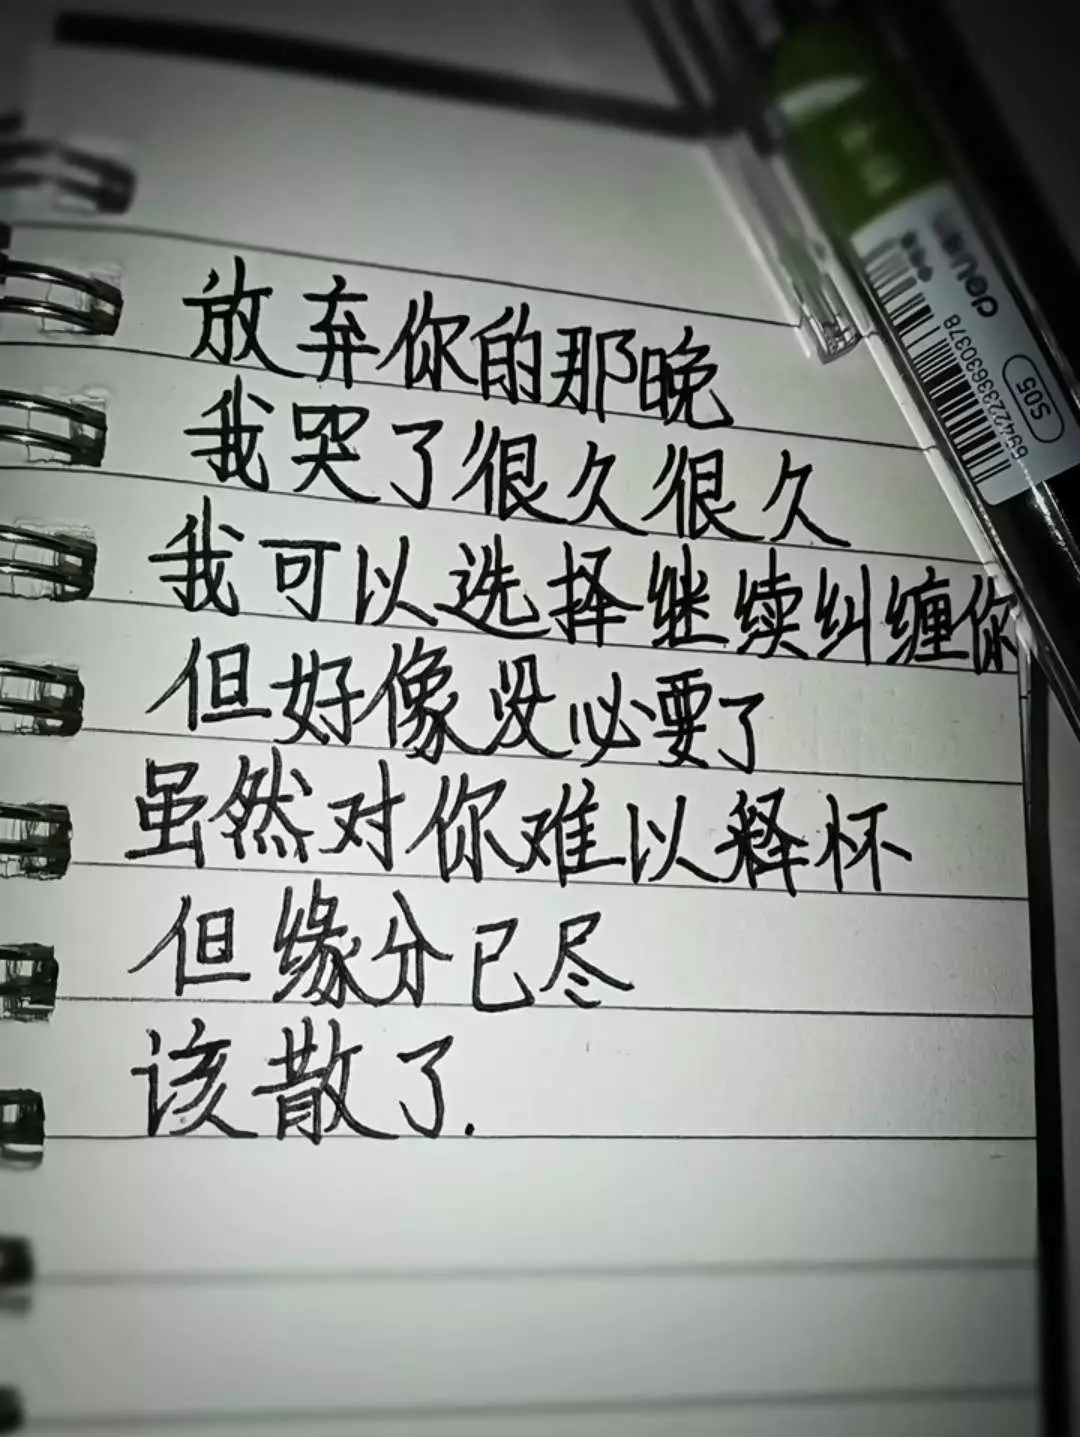 放弃你的那晚
我哭了很久很久
我可以选择继续纠缠你
但好像没必要了
虽然对你难以释怀
但缘分已尽
该散了.
deli
S05
6942233630378